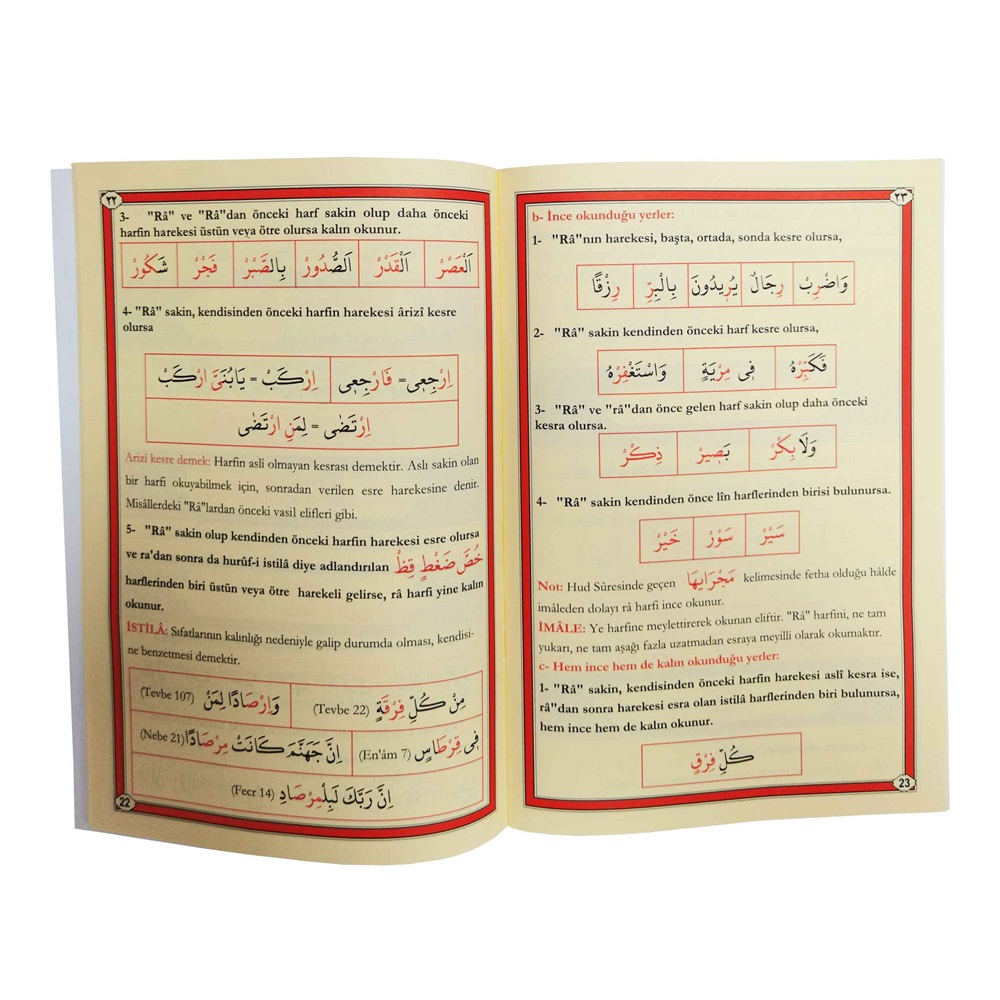 ٢٢
3- "Râ" ve "Râ"dan önceki harf sakin olup daha önceki
harfin harekesi üstün veya ötre olursa kalın okunur.
اَلْعَصْرْ اَلْقَدْرْ اَلصُّدُورْ بِالصَّبْرْ فَجْرْ شَكُورْ
4- "Râ" sakin, kendisinden önceki harfin harekesi ârizî kesre
olursa
اِرْجِعِى= فَارْجِعِى اِرْكَبْ = يَابُنَىَّ ارْكَبْ
اِرْتَضٰى = لِمَنِ ارْتَضٰى
Arizi kesre demek: Harfin aslî olmayan kesrası demektir. Aslı sakin olan
bir harfi okuyabilmek için, sonradan verilen esre harekesine denir.
Misâllerdeki "Râ"lardan önceki vasil elifleri gibi.
5- "Râ" sakin olup kendinden önceki harfin harekesi esre olursa
ve ra'dan sonra da hurûf-i istilâ diye adlandırılan خُصَّ ضَغْطٍ قِظْ
harflerinden biri üstün veya ötre harekeli gelirse, râ harfi yine kalın
okunur.
İSTİLÂ: Sıfatlarının kalınlığı nedeniyle galip durumda olması, kendisi-
ne benzetmesi demektir.
مِنْ كُلِّ فِرْقَةٍ (Tevbe 22) وَاِرْصَادًا لِمَنْ (Tevbe 107)
فِى قِرْطَاسٍ (En'âm 7) اِنَّ جَهَنَّمَ كَانَتْ مِرْصَادًا (Nebe 21)
اِنَّ رَبَّكَ لَبِالْمِرْصَادِ (Fecr 14)
22
٢٣
b- İnce okunduğu yerler:
1- "Râ"nın harekesi, başta, ortada, sonda kesre olursa,
وَاضْرِبْ رِجَالٌ يُرِيدُونَ بِالْبِرِّ رِزْقًا
2- "Râ" sakin kendinden önceki harf kesre olursa,
فَكَبِّرْهُ فِى مِرْيَةٍ وَاسْتَغْفِرْهُ
3- "Râ" ve "râ"dan önce gelen harf sakin olup daha önceki
kesra olursa.
وَلَابِكْرْ بَصِيرْ ذِكْرْ
4- "Râ" sakin kendinden önce lîn harflerinden birisi bulunursa.
سَيْرْ سَوْرْ خَيْرْ
Not: Hud Sûresinde geçen مَجْرَايهَا kelimesinde fetha olduğu hâlde
imâleden dolayı râ harfi ince okunur.
İMÂLE: Ye harfine meylettirerek okunan eliftir. "Râ" harfini, ne tam
yukarı, ne tam aşağı fazla uzatmadan esraya meyilli olarak okumaktır.
c- Hem ince hem de kalın okunduğu yerler:
1- "Râ" sakin, kendisinden önceki harfin harekesi aslî kesra ise,
râ"dan sonra harekesi esra olan istilâ harflerinden biri bulunursa,
hem ince hem de kalın okunur.
كُلِّ فِرْقٍ
23